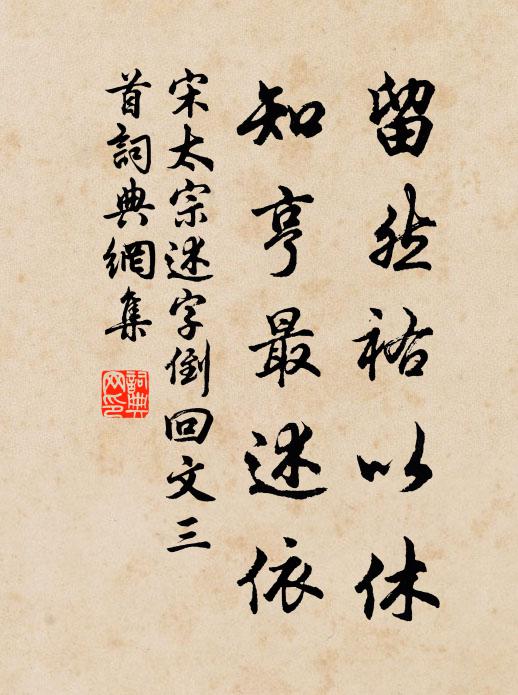 留然祐以休
知亨最述依
宋太宗述字倒回文三
首詞典網集
詞典
网印